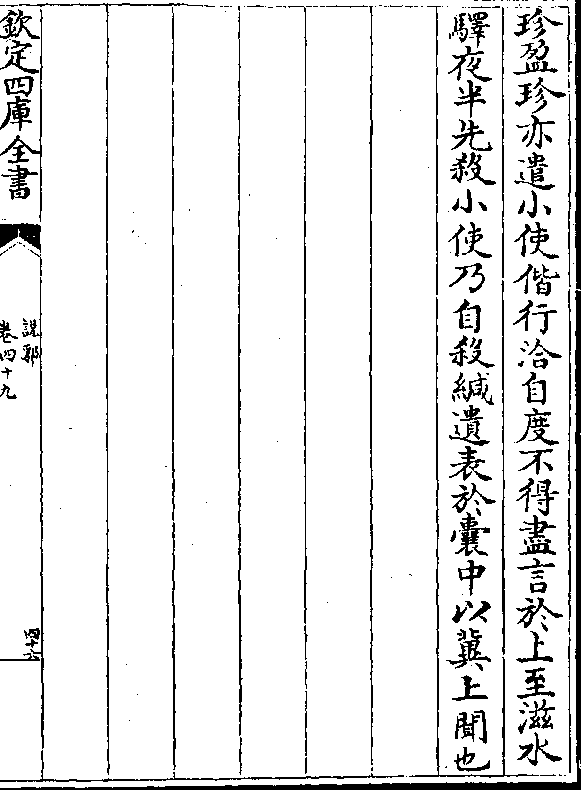 珍盈珍亦遣小使偕行洽自度不得盡言於上至滋水
驛夜半先殺小使乃自殺緘遺表於囊中以冀上聞也
欽定四庫全書
說郛
卷四十九
四十六